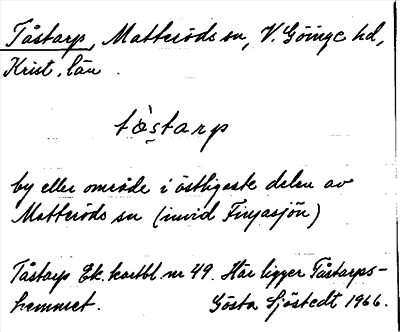 Tåstarp, Matteröds sn, V. Göinge hd,
Krist. län.
tòstarp
by eller område i östligaste delen av
Matteröds sn (invid Finjasjön)
Tåstarp Ek. kartbl. nr 49. Här ligger Tåstarps-
hemmet. Gösta Sjöstedt 1966.